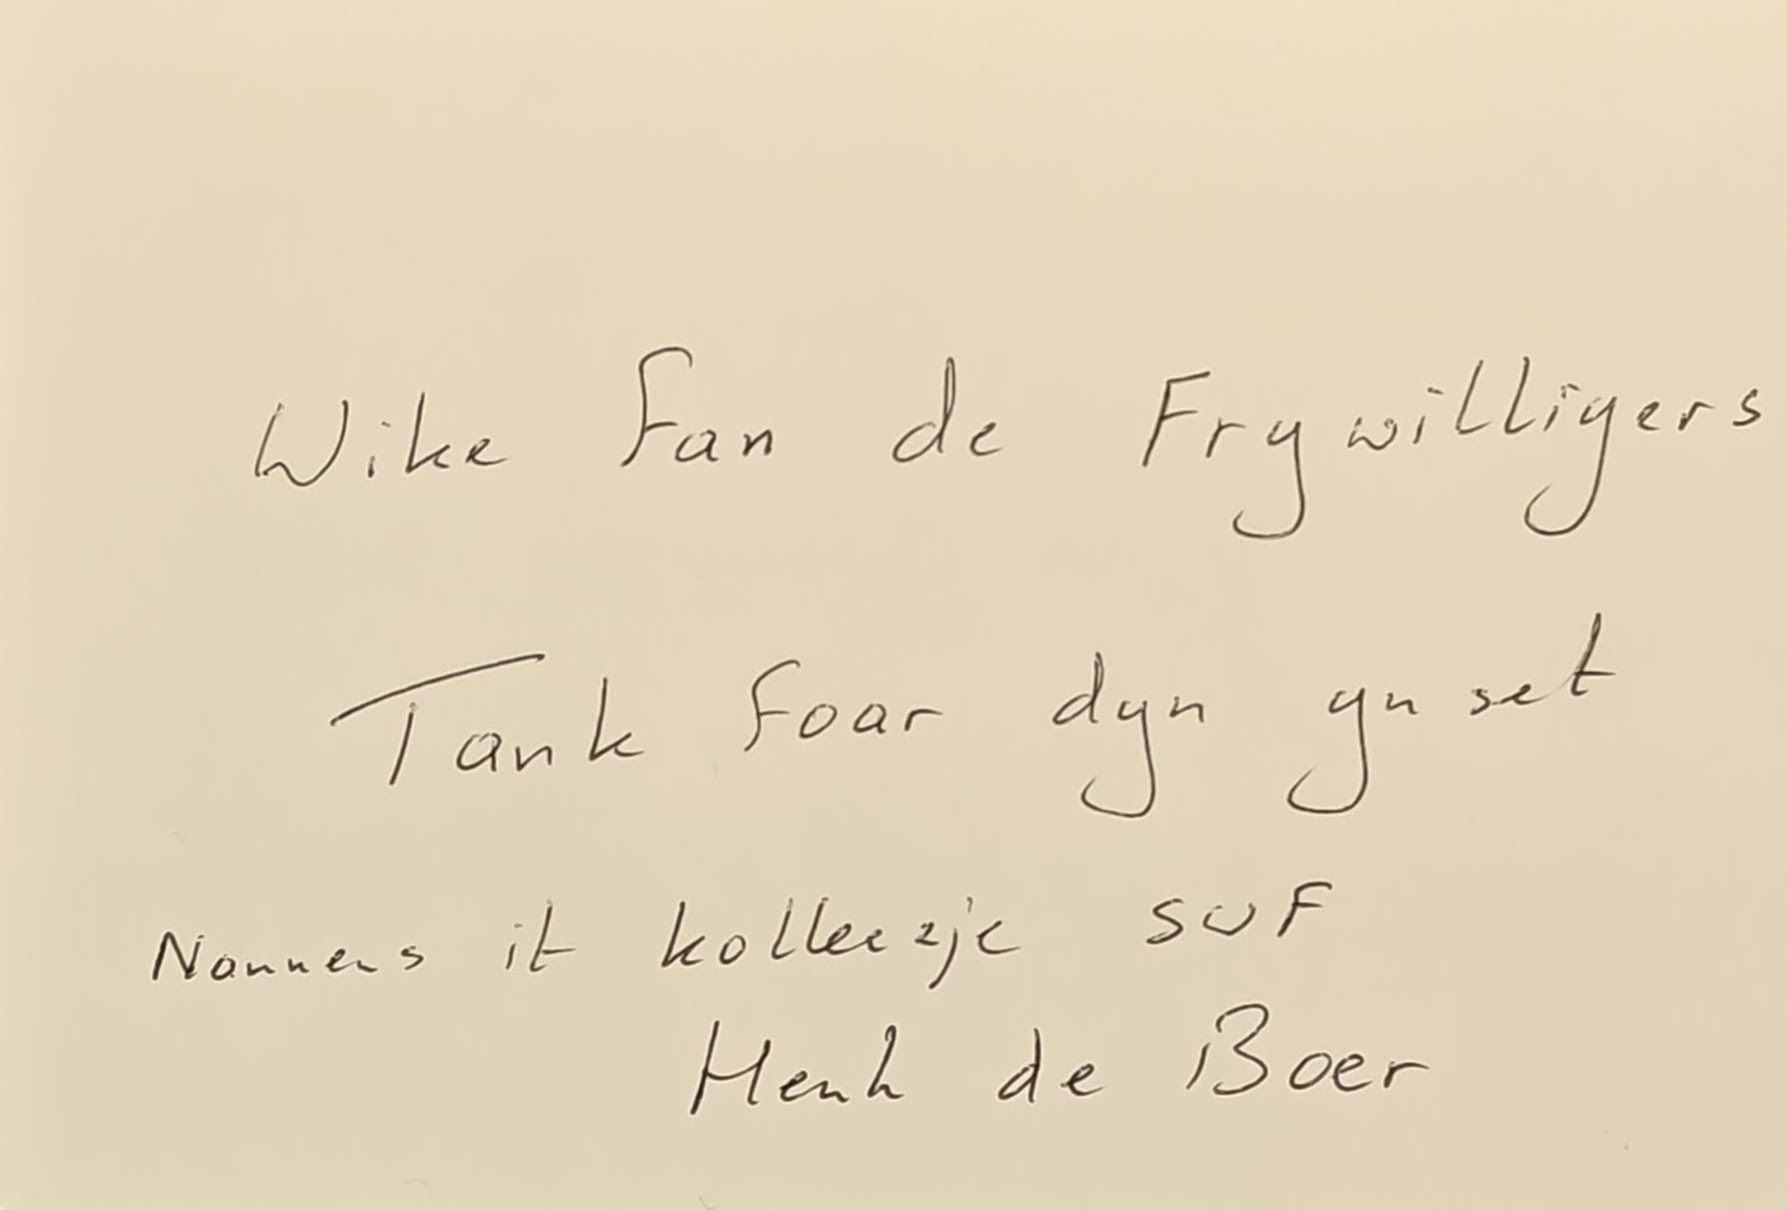 Wike fan de Frywilligers
Tank foar dyn ynset
Nammens it kolleezje SWF
Henk de Boer